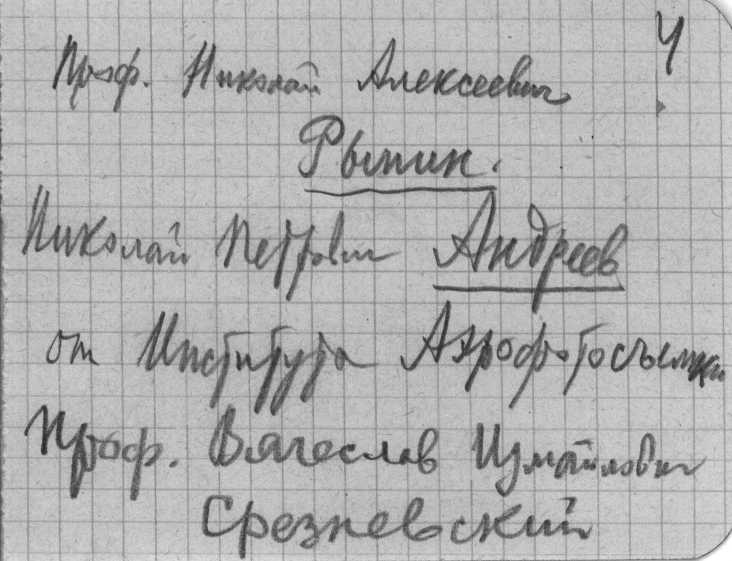 4
Проф. Николай Алексеевич
Рынин.
Николай Петрович Андреев
от Института Аэрофотосъемки
Проф. Вячеслав Измайлович
Срезневский